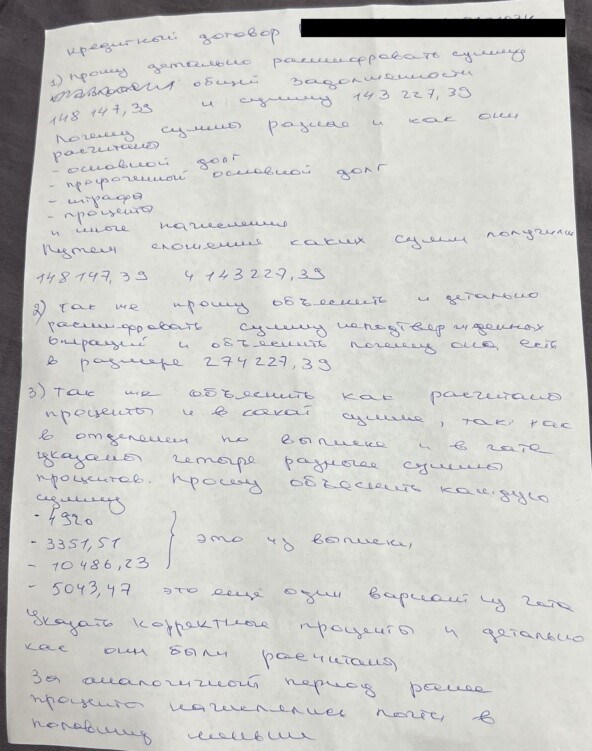 кредитный договор
1) прошу детально расшифровать сумму
общей задолженности
148 147,39 и сумму 143 227,39
Почему суммы разные и как они
расчитаны
- основной долг
- просроченный основной долг
- штрафы
- проценты
и иные начисления
Путем сложения каких сумм получились
148147,39 и 143227,39
2) так же прошу объеснить и детально
расшифровать сумму неподтвержденных
операций и объеснить почему она есть
в размере 274227,39
3) Так же объеснить как расчитано
проценты и в какой сумме, так как
в отделении по выписке и в чате
указаны четыре разные суммы
процентов. Прошу объеснить каждую
сумму
- 4920
- 3351,51 это из выписки
- 10486,23
- 5043,47 это еще один вариант из чата
Указать корректные проценты и детально
как они были расчитаны
За аналогичный период ранее
проценты начислялись почти в
половину меньше